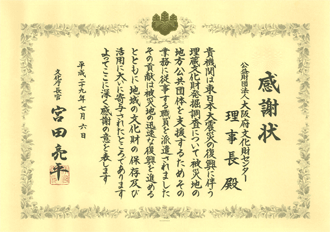 感謝状
公益財団法人大阪府文化財センター
理事長 殿
貴機関は東日本大震災の復興に伴う
埋蔵文化財発掘調査について被災地の
地方公共団体を支援するためその
業務に従事する職員を派遣されました
その貢献は被災地の迅速な復興を進める
とともに地域の文化財の保存及び
活用に大いに寄与されたところであります
よってここに深く感謝の意を表します
平成二十九年七月六日
文化庁長官
宮田亮平